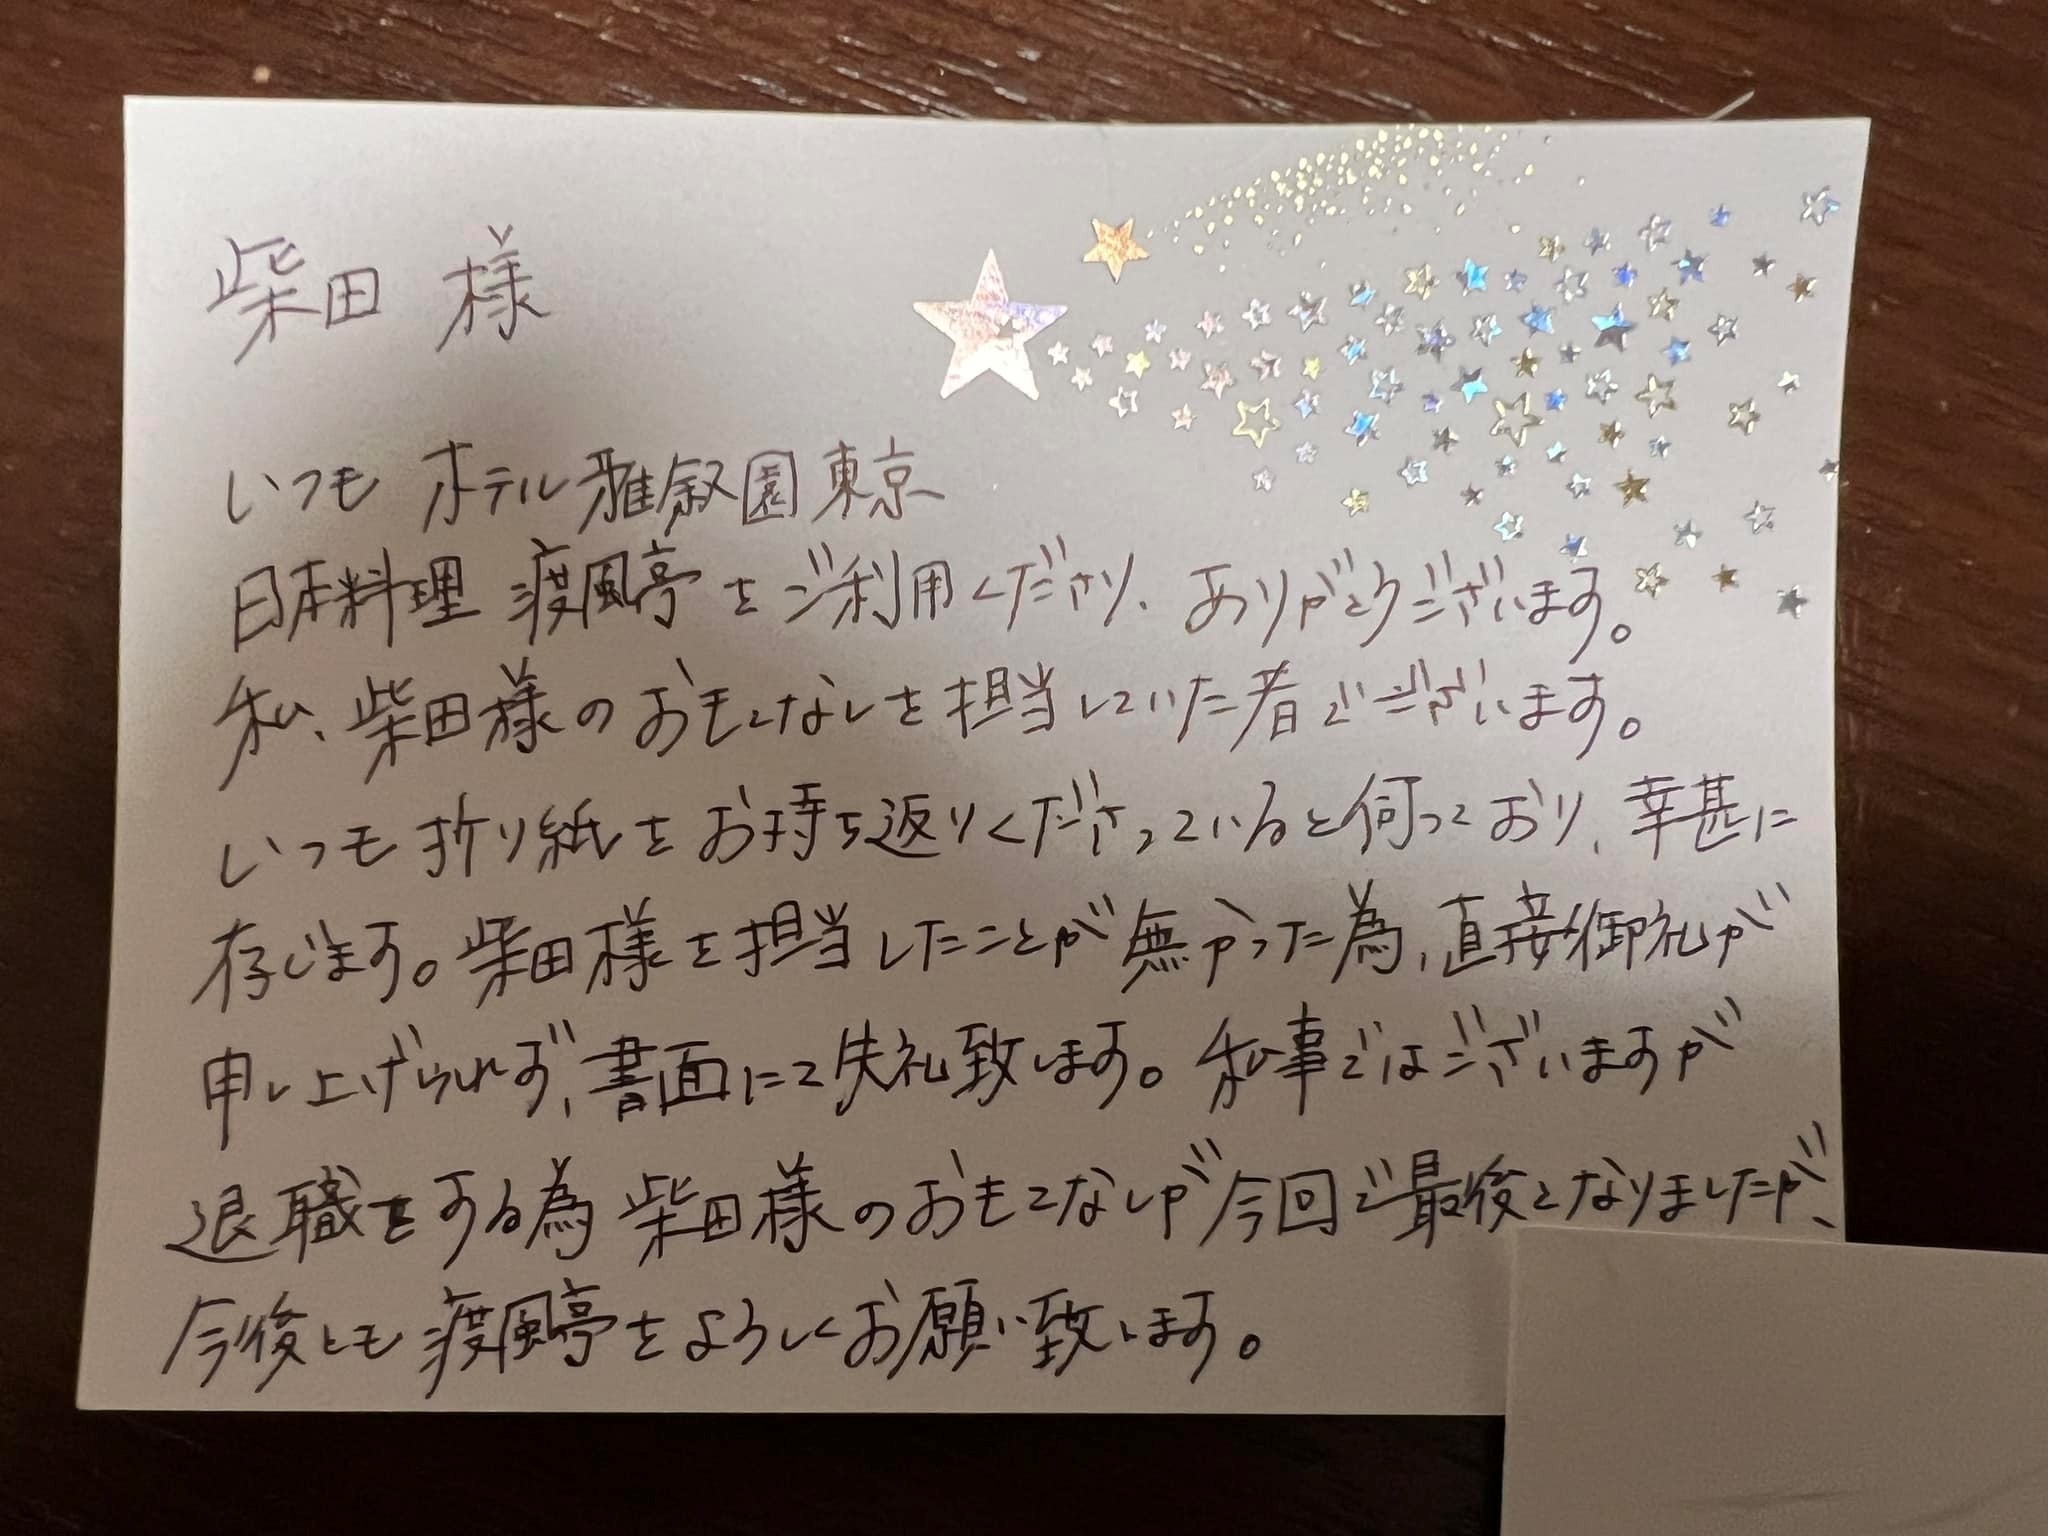 柴田 様
いつも ホテル雅叙園東京
日本料理 渡風亭をご利用くださり、ありがとうございます。
私、柴田様のおもてなしを担当していた者でございます。
いつも折り紙をお持ち返りくださっていると伺っており、幸甚に
存じます。柴田様を担当したことが無かった為、直接御礼が
申し上げられず、書面にて失礼致します。私事ではございますが
退職をする為 柴田様のおもてなしが今回で最後となりましたが、
今後とも渡風亭をよろしくお願い致します。